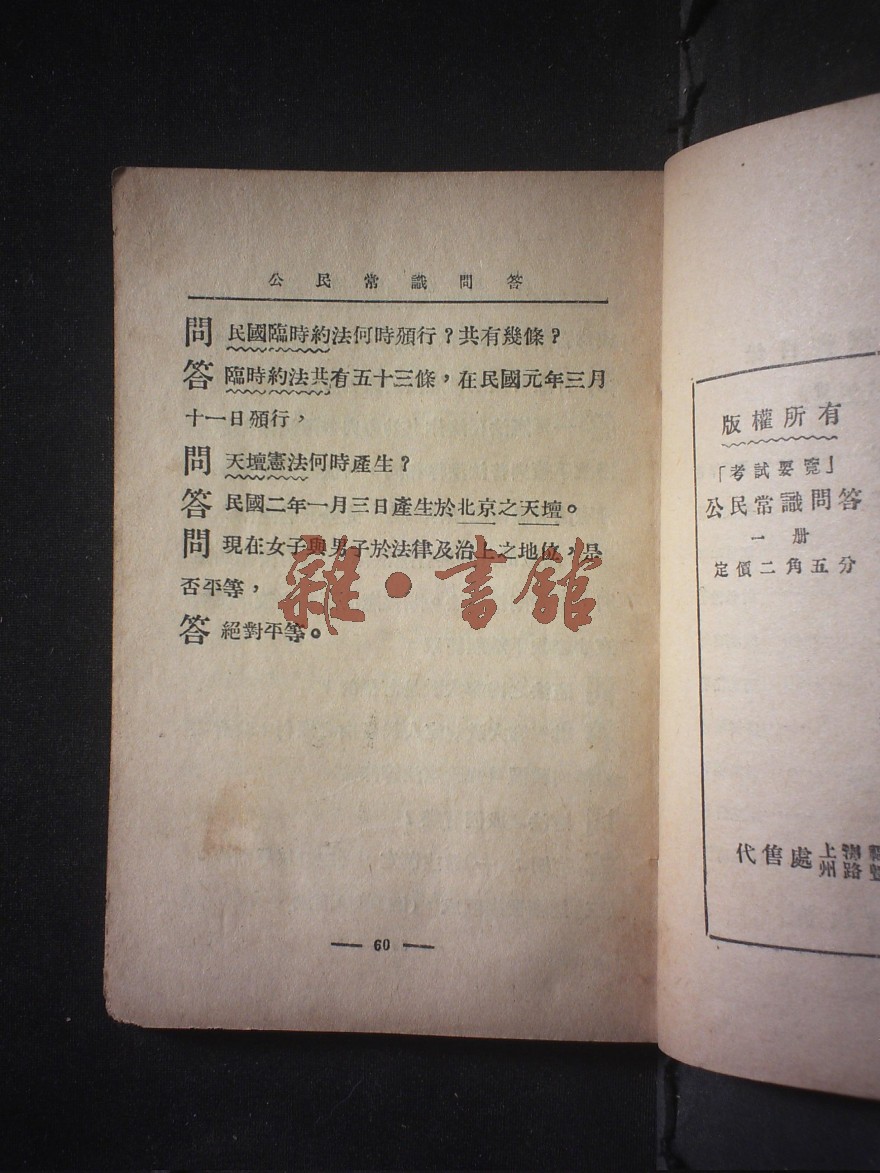 公民常識問答
問 民國臨時約法何時頒行？共有幾條？
答 臨時約法共有五十三條，在民國元年三月
十一日頒行，
問 天壇憲法何時產生？
答 民國二年一月三日產生於北京之天壇。
問 現在女子與男子於法律及治上之地位，是
否平等，
答 絕對平等。
— 60 —
雜·書館
版權所有
「考試要覽」
公民常識問答
一册
定價二角五分
代售處
上海
州路